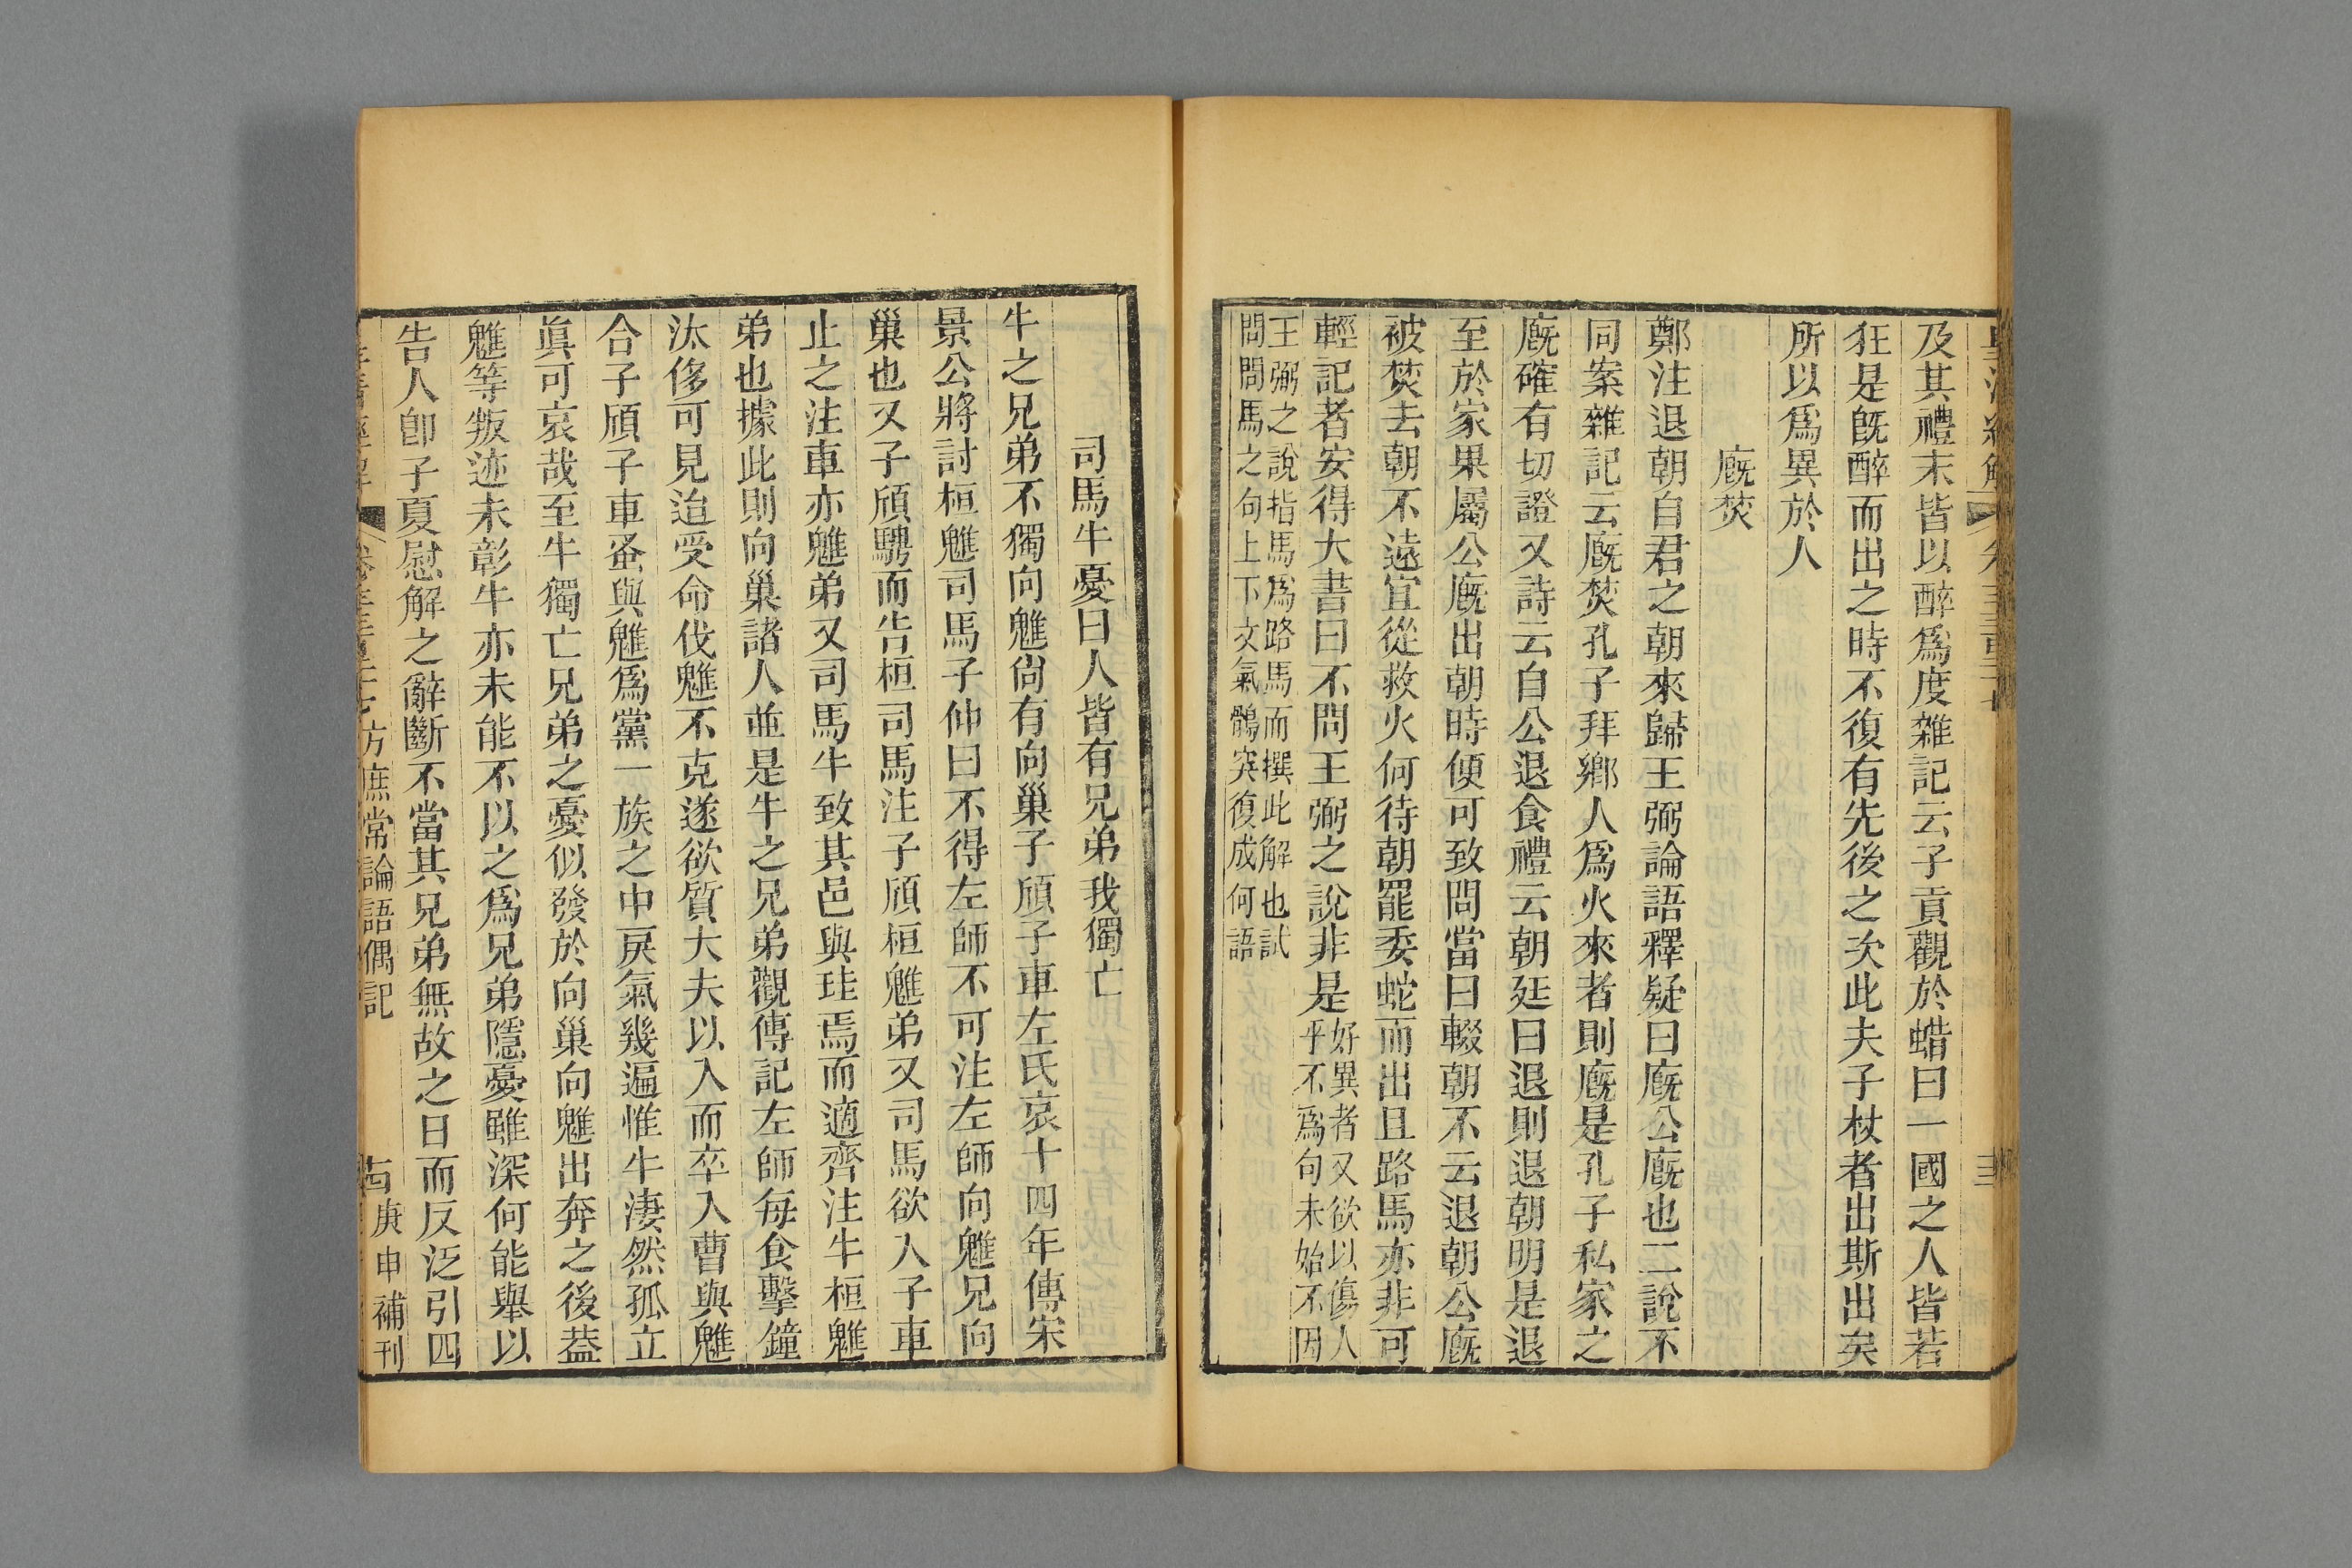 及其禮末皆以醉爲度雜記云子貢觀於蜡曰一國之人皆若
狂是既醉而出之時不復有先後之次此夫子杖者出斯出矣
所以爲異於人
廐焚
鄭注退朝自君之朝來歸王弼論語釋疑曰廐公廐也二說不
同案雜記云廐焚孔子拜鄉人爲火來者則廐是孔子私家之
廐確有切證又詩云自公退食禮云朝廷曰退則退朝明是退
至於家果屬公廐出朝時便可致問當曰輟朝不云退朝公廐
被焚去朝不遠宜從救火何待朝罷委蛇而出且路馬亦非可
輕記者安得大書曰不問王弼之說非是好異者又欲以傷人
乎不爲句未始不因
王弼之說指馬爲路馬而撰此解也試
問問馬之句上下文氣鶻突復成何語
司馬牛憂曰人皆有兄弟我獨亡
牛之兄弟不獨向魋尙有向巢子頎子車左氏哀十四年傳宋
景公將討桓魋司馬子仲曰不得左師不可注左師向魋兄向
巢也又子頎騁而告桓司馬注子頎桓魋弟又司馬欲入子車
止之注車亦魋弟又司馬牛致其邑與珪焉而適齊注牛桓魋
弟也據此則向巢諸人並是牛之兄弟觀傳記左師每食擊鐘
汰侈可見迨受命伐魋不克遂欲質大夫以入而卒入曹與魋
合子頎子車蚤與魋爲黨一族之中戾氣幾遍惟牛淒然孤立
眞可哀哉至牛獨亡兄弟之憂似發於向巢向魋出奔之後葢
魋等叛迹未彰牛亦未能不以之爲兄弟隱憂雖深何能舉以
告人卽子夏慰解之辭斷不當其兄弟無故之日而反泛引四
方庶常論語偶記
庚申補刊